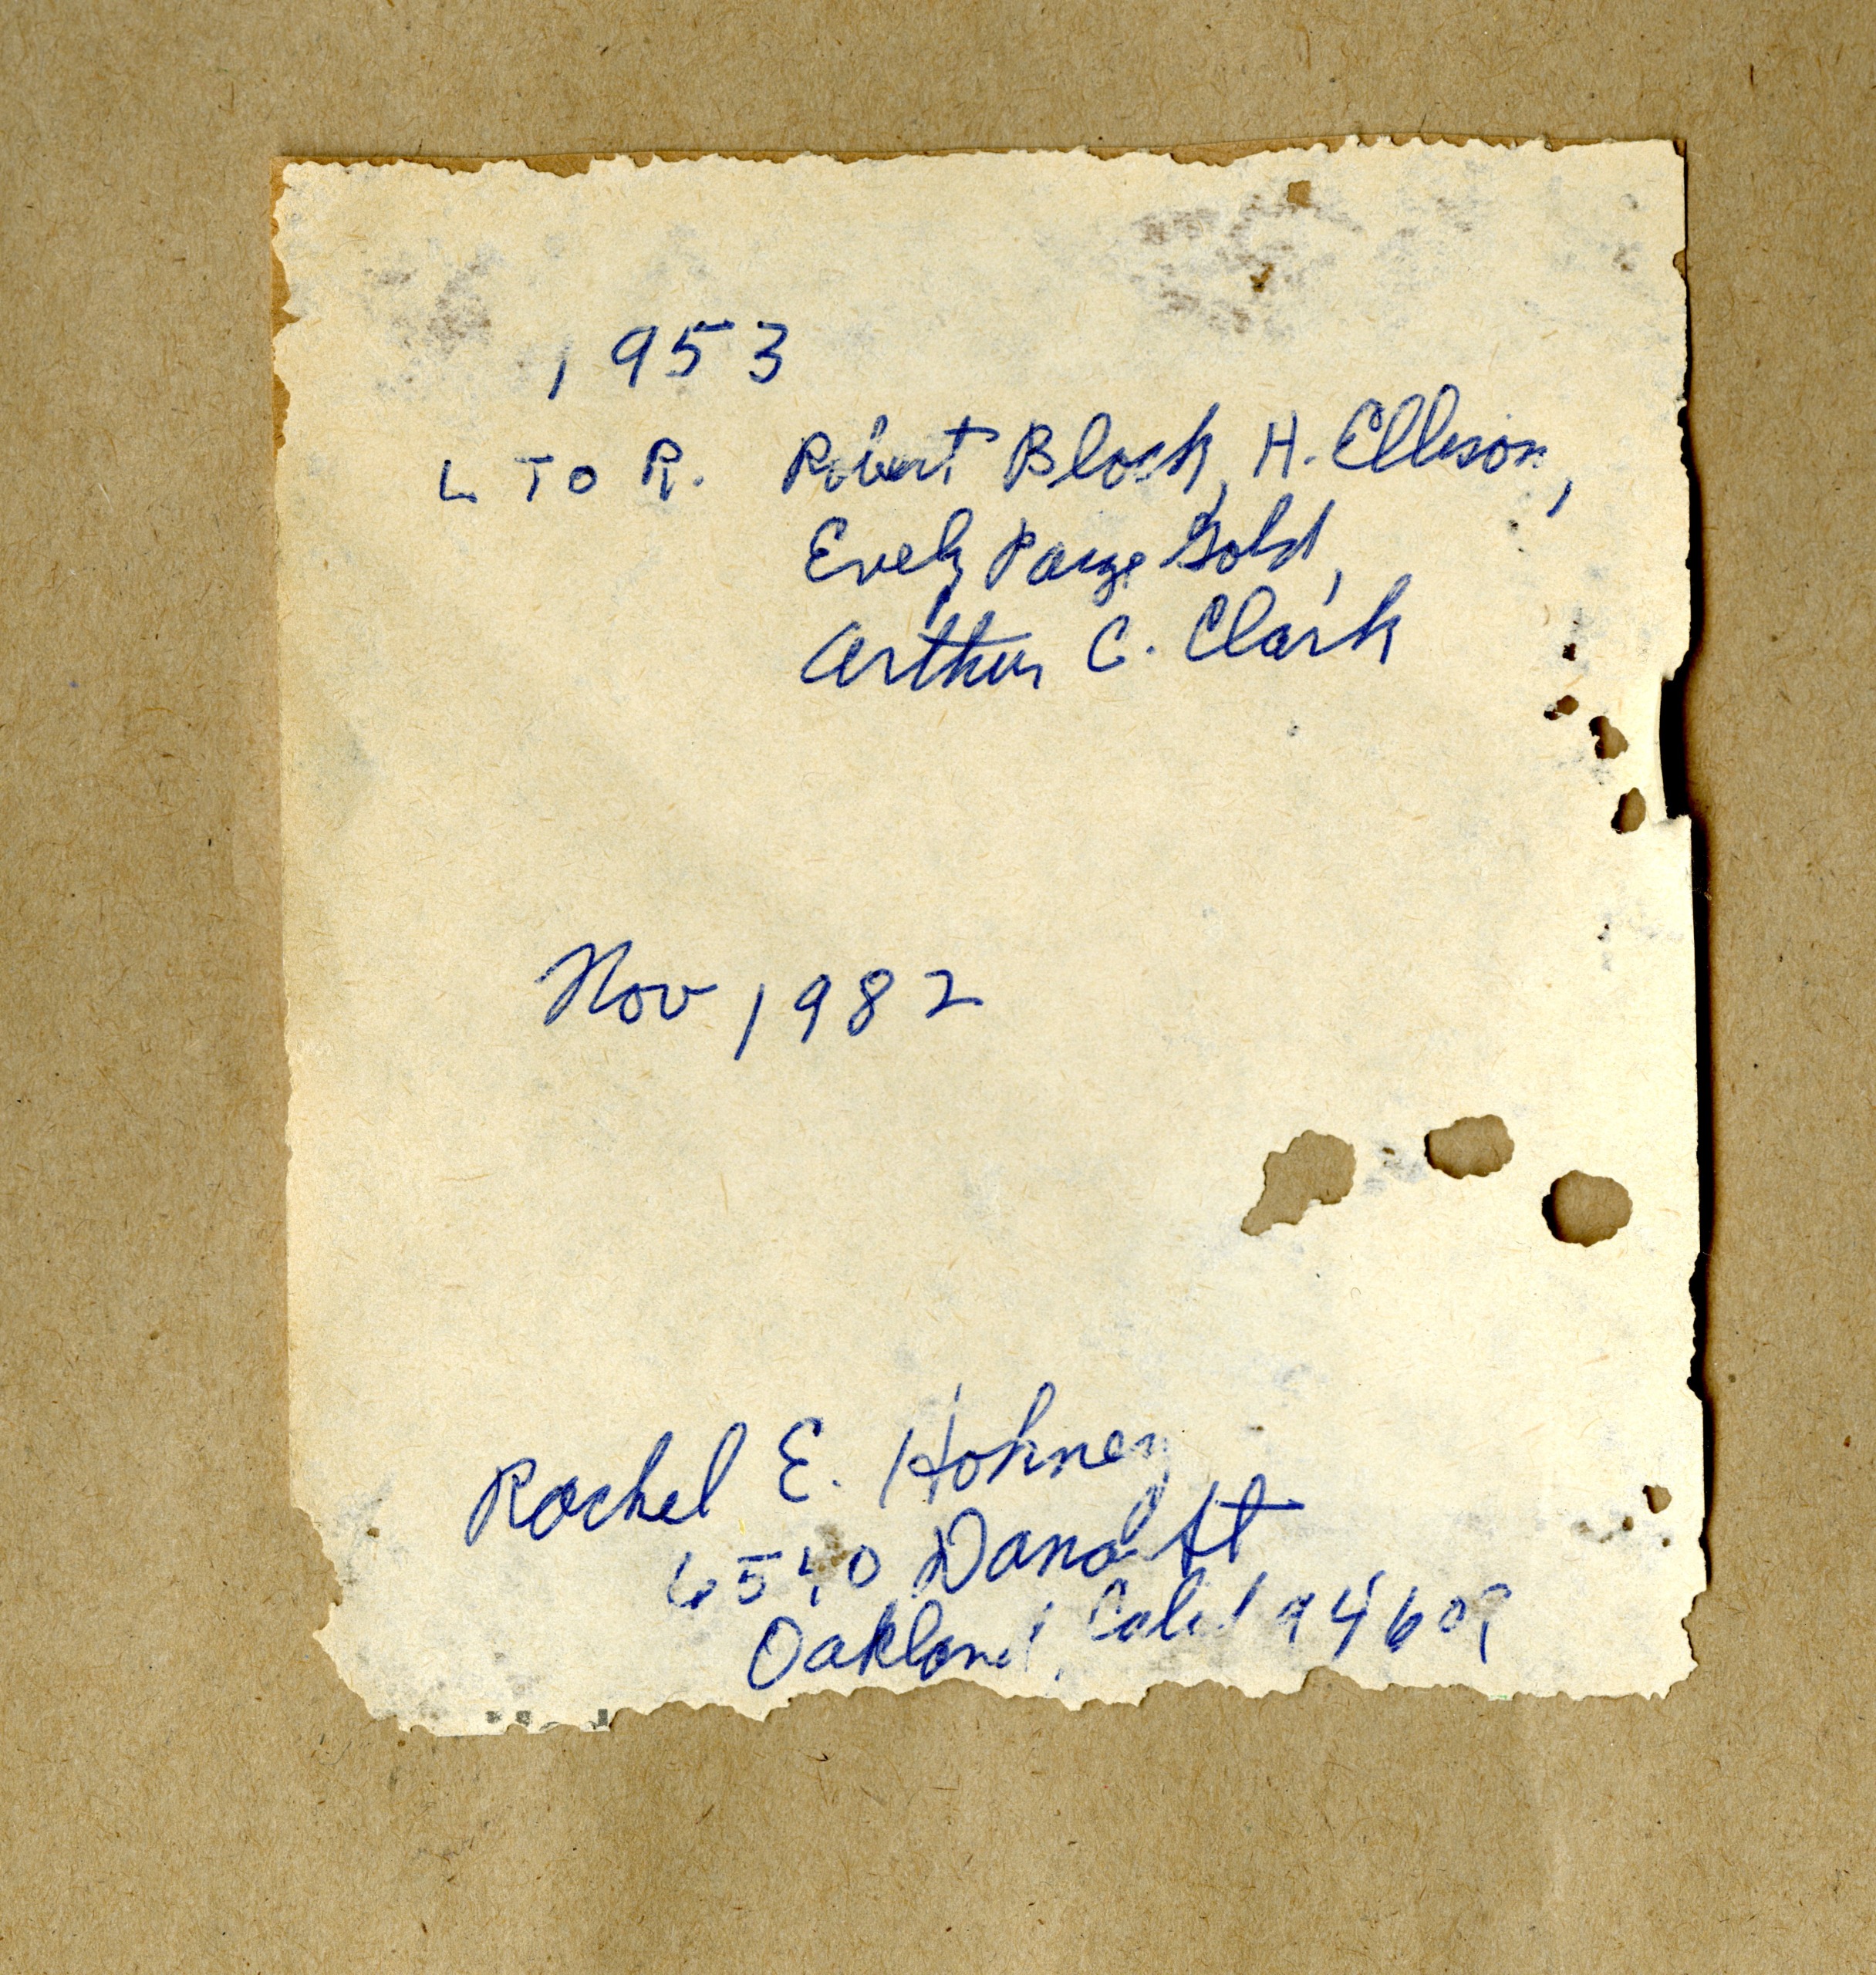 1953
L TO R. Robert Block, H. Ellison,
Evely Paige Gold,
Arthur C. Clark
Nov 1982
Rachel E. Hohney
6540 Dana St
Oakland, Calif 94609